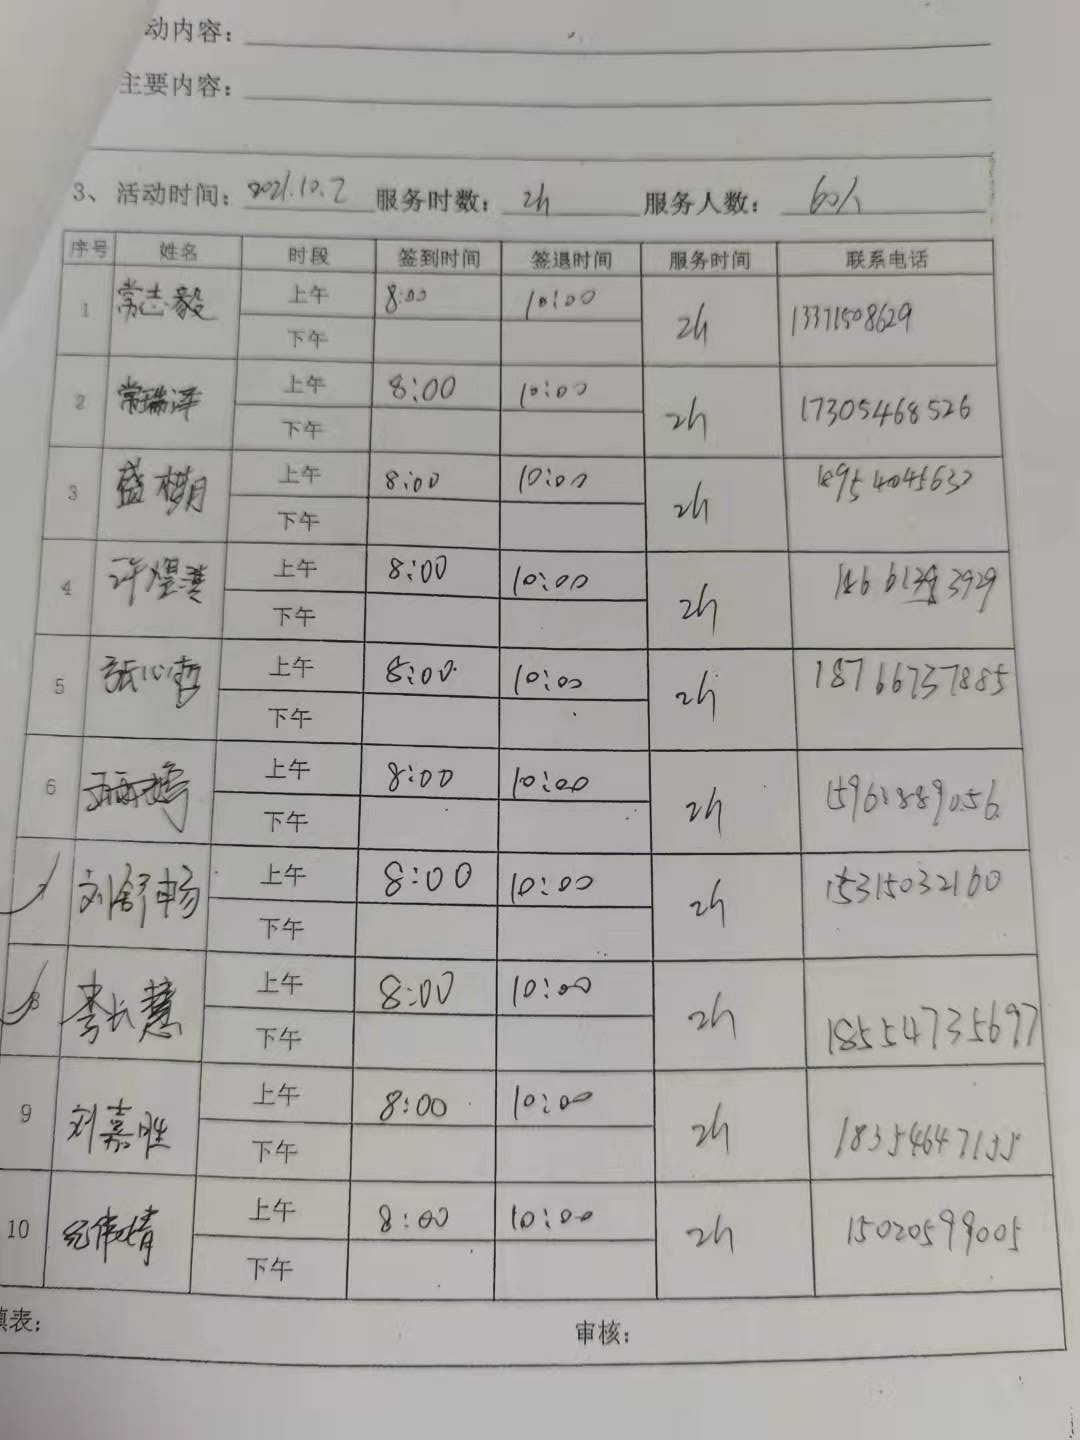 动内容：
主要内容：
3、活动时间：2021.10.2 服务时数：2h 服务人数：60人
序号 姓名 时段 签到时间 签退时间 服务时间 联系电话
1 常志毅 上午 8:00 10:00 2h 13371508629
下午
2 常瑞泽 上午 8:00 10:00 2h 17305468526
下午
3 盛棋月 上午 8:00 10:00 2h
下午
4 上午 8:00 10:00 2h
下午
5 张心哲 上午 8:00 10:00 2h 18766737885
下午
6 上午 8:00 10:00 2h
下午
7 刘舒畅 上午 8:00 10:00 2h 15315032160
下午
8 李长慧 上午 8:00 10:00 2h 18554735697
下午
9 刘嘉胜 上午 8:00 10:00 2h
下午
10 纪伟婧 上午 8:00 10:00 2h 15020599005
下午
填表： 审核：